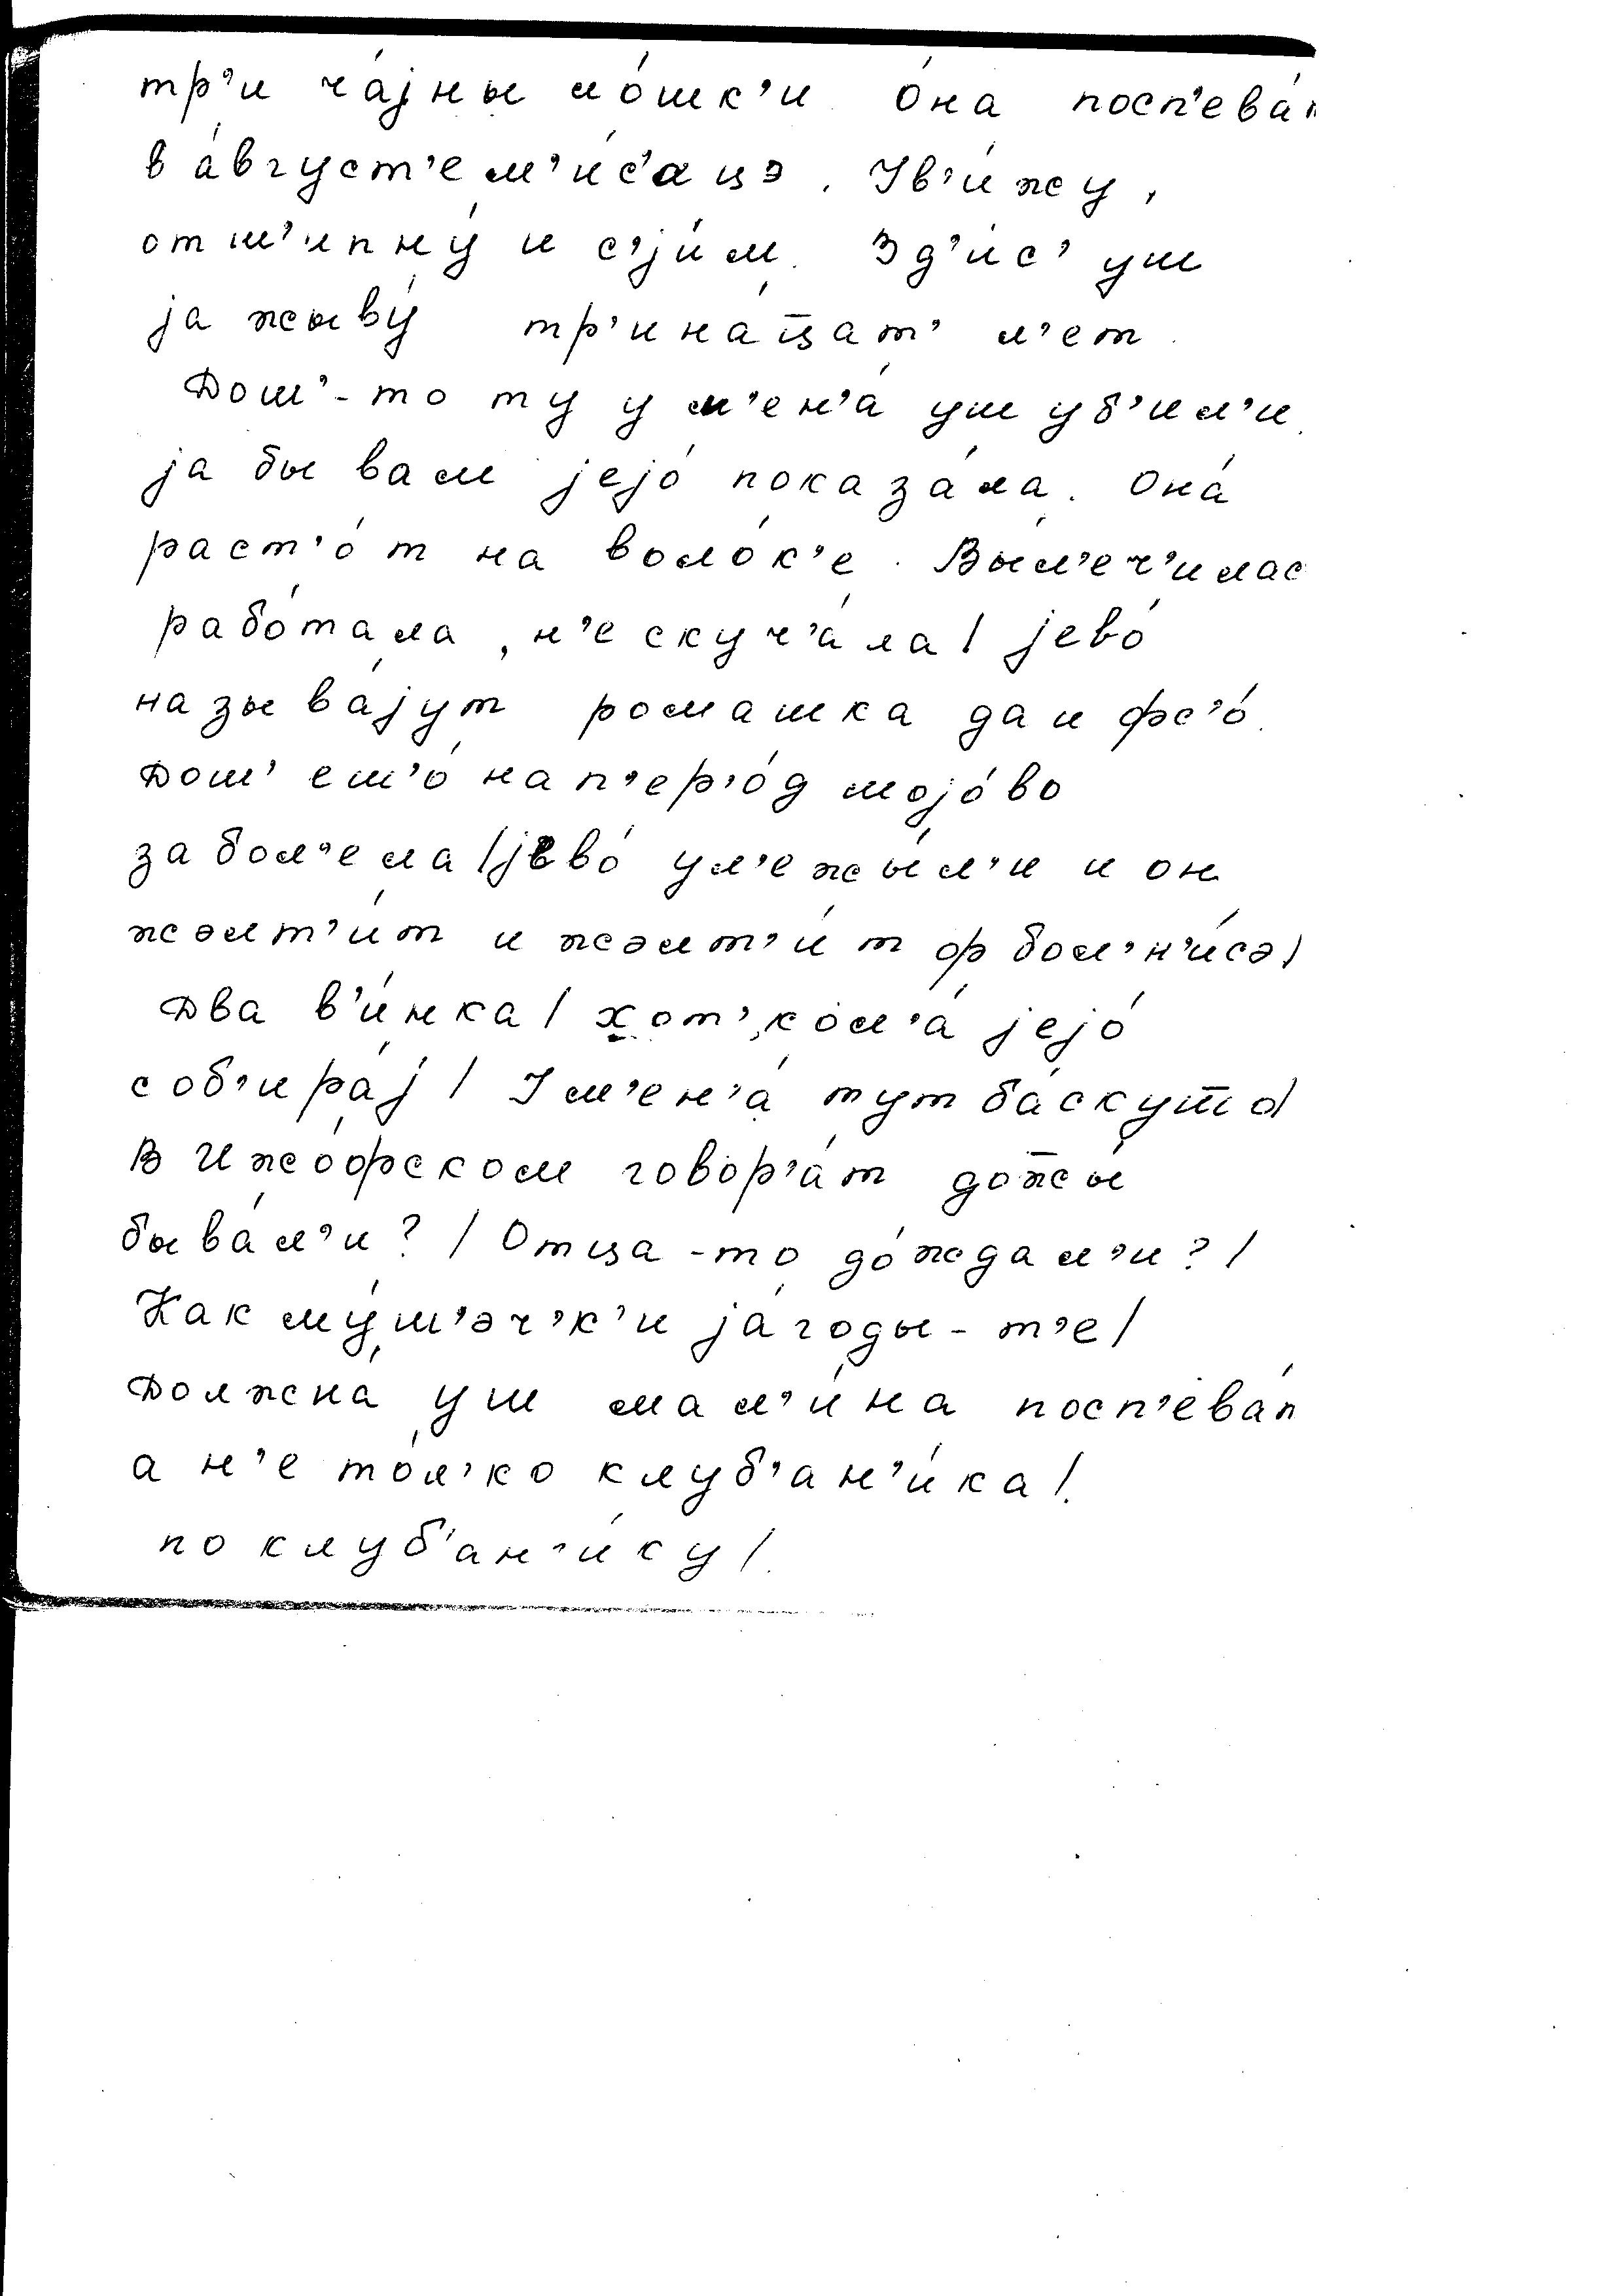 тр'и ча́јны ло́шк'и. О́на посп'ева́т
в а́вгуст'е м'и́с'ацэ. Ув'и́жу,
отш'ипну́ и с'ји́м. Зд'и́с' уш
ја жыву́ тр'ина́цат' л'ет.
Дош'-то ту у м'ен'а́ уш уб'ил'и.
ја бы вам јејо́ показа́ла. Она́
раст'о́т на воло́к'е. Вы́л'еч'илас
рабо́тала, н'е скуч'а́ла/ јево́
называ́јут ромашка да и фс'о́.
Дош' еш'о́ нап'ер'о́д мојо́во
забол'ела/јево́ ул'ежы́л'и и он
жэлт'и́т и жэлт'и́т ф бол'н'и́сэ/
Два в'и́нка/ хот' кол'а́ јејо́
соб'ира́ј/ У м'ен'а́ тут ба́скут̅о/
В Ижо́фском говор'а́т дож̅ы́
быва́л'и? / Отца-то до́ждал'и? /
Как му́ш'эч'к'и ја́годы-т'е/
Должна́ уш мал'и́на посп'ева́т
а н'е то́л'ко клуб'ан'и́ка/.
по клуб'ан'и́ку/.